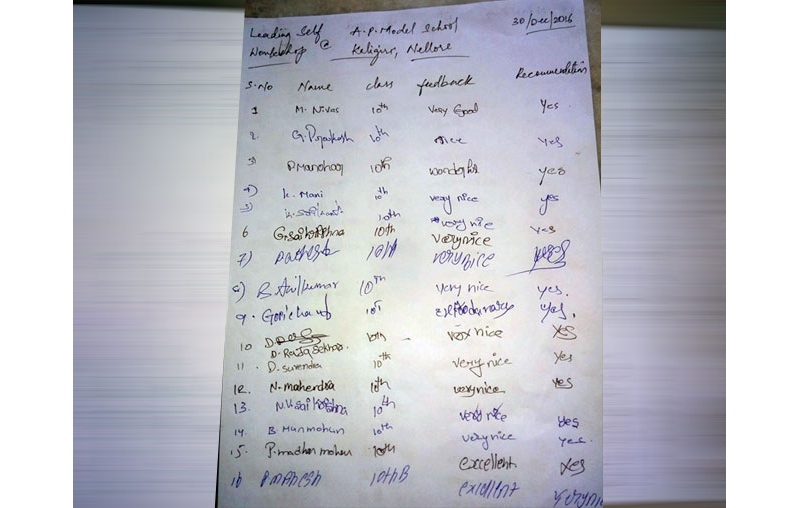 Leading Self A.P. Model School 30/Dec/2016
Workshop @ Kaligiri, Nellore
S.No Name class feedback Recommendation
1 M. Nivas 10th Very Good Yes
2. G. Prakash 10th nice yes
3) P. Manohar 10th yes
4) K. Mani 10th very nice yes
5) K. 10th very nice
6 G. Sai krishna 10th very nice yes
7) 10th very nice yes
8) B. Anilkumar 10th very nice yes.
9. Gopichand yes.
10 D. Raja Sekhar. 10th very nice yes
11. D. Surendra 10th very nice yes
12. N. mahendra 10th very nice yes
13. N.V. sai krishna 10th very nice yes
14. B. Manmohan 10th very nice yes.
15. P. madhan mohan 10th excellent yes
16 P. MAHESH 10th B